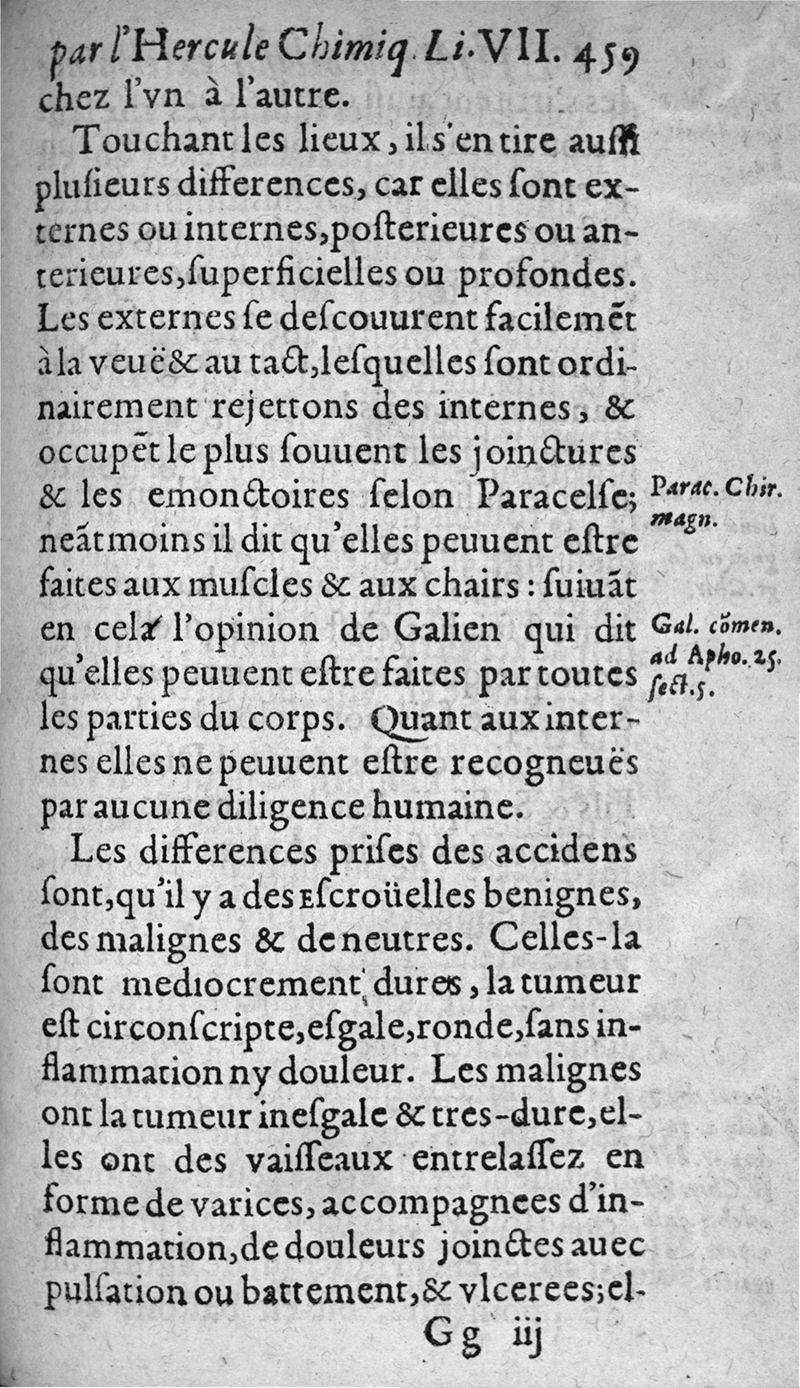 par l'Hercule Chimiq. Li. VII. 459
chez l'vn à l'autre.
Touchant les lieux, il s'en tire auſſi
pluſieurs differences, car elles ſont ex-
ternes ou internes, poſterieures ou an-
terieures, ſuperficielles ou profondes.
Les externes ſe deſcouurent facilemẽt
à la veuë & au tact, leſquelles ſont ordi-
nairement rejettons des internes, &
occupẽt le plus ſouuent les joinctures
& les emonctoires ſelon Paracelſe;
Parac. Chir.
magn.
neãtmoins il dit qu'elles peuuent eſtre
faites aux muſcles & aux chairs : ſuiuãt
en cela l'opinion de Galien qui dit
Gal. cõmen.
ad Apho. 25.
ſect. 5.
qu'elles peuuent eſtre faites par toutes
les parties du corps. Quant aux inter-
nes elles ne peuuent eſtre recogneuës
par aucune diligence humaine.
Les differences priſes des accidens
ſont, qu'il y a des Eſcroüelles benignes,
des malignes & de neutres. Celles-la
ſont mediocrement dures, la tumeur
eſt circonſcripte, eſgale, ronde, ſans in-
flammation ny douleur. Les malignes
ont la tumeur ineſgale & tres-dure, el-
les ont des vaiſſeaux entrelaſſez en
forme de varices, accompagnees d'in-
flammation, de douleurs joinctes auec
pulſation ou battement, & vlcerees; el-
Gg iij